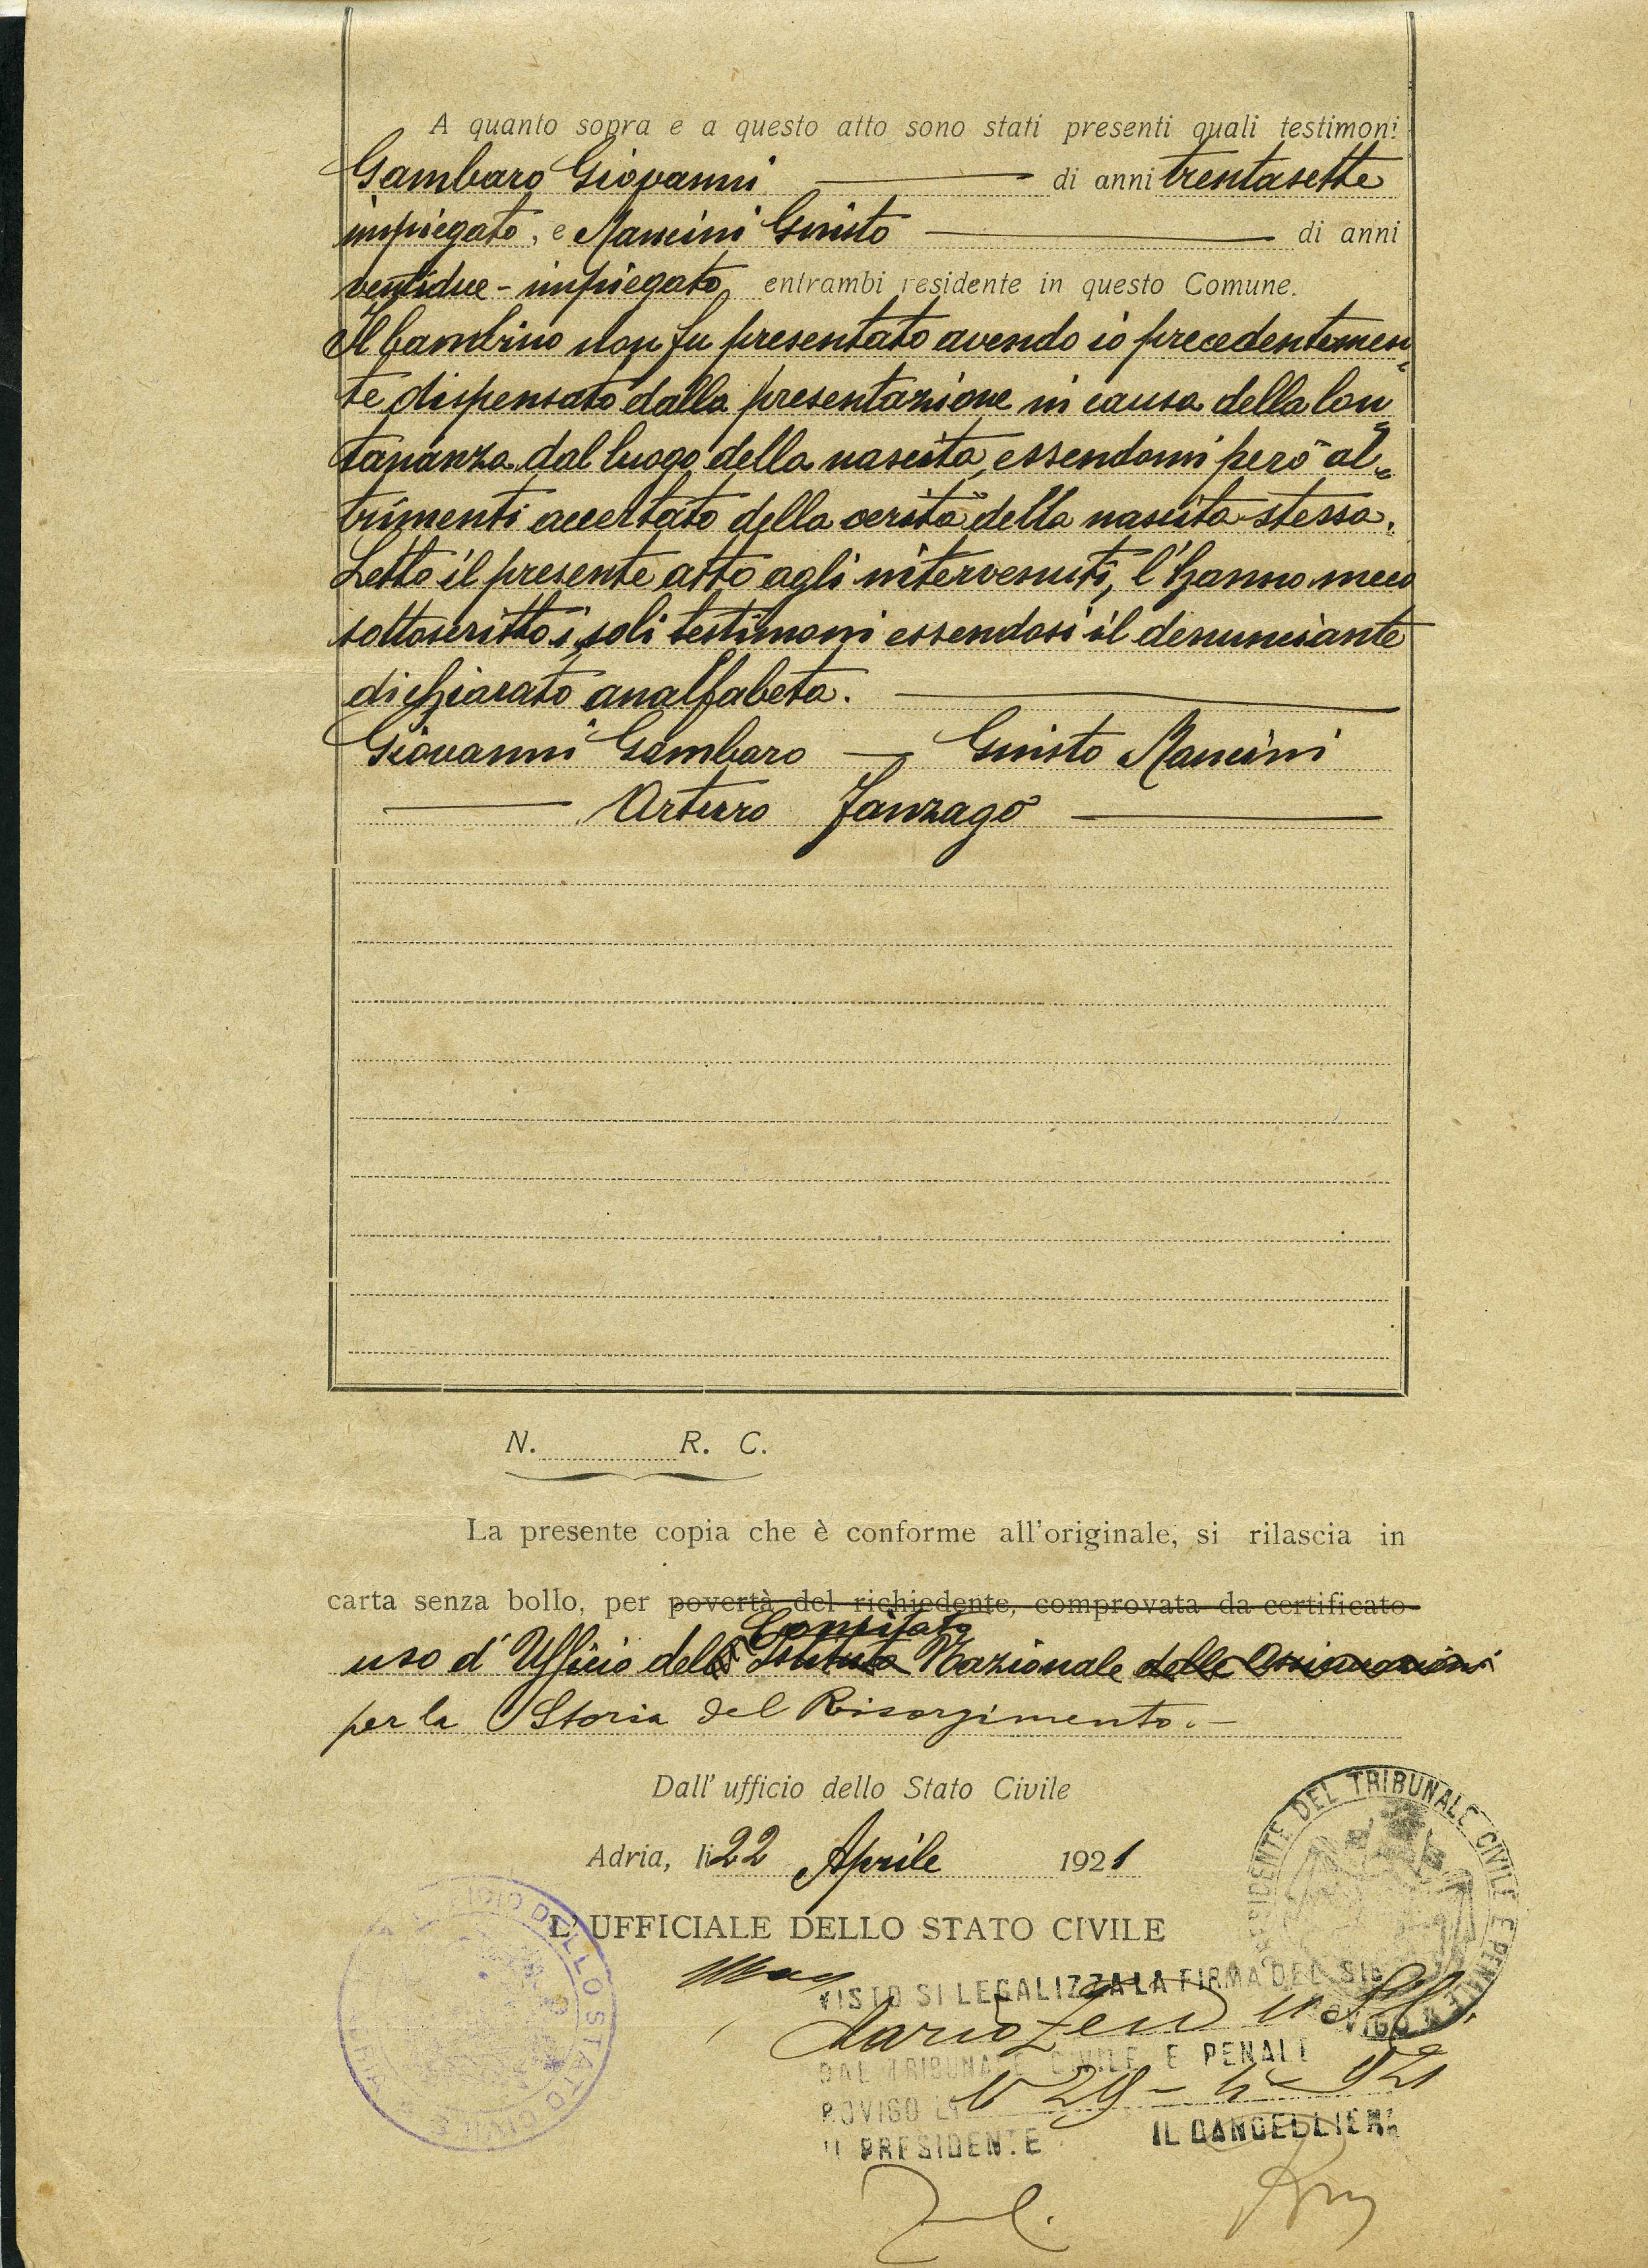 A quanto sopra e a questo atto sono stati presenti quali testimoni
Gambaro Giovanni di anni trentasette
impiegato, e Mancini Giusto di anni
ventidue - impiegato entrambi residente in questo Comune.
Il bambino non fu presentato avendo io precedentemen=
te dispensato dalla presentazione in causa della lon=
tananza dal luogo della nascita, essendomi però al=
trimenti accertato della verità della nascita stessa.
Letto il presente atto agli intervenuti, l'hanno meco
sottoscritto i soli testimoni essendosi il denunciante
dichiarato analfabeta.
Giovanni Gambaro — Giusto Mancini
Arturo Zanzago
N. R. C.
La presente copia che è conforme all'originale, si rilascia in
carta senza bollo, per povertà del richiedente, comprovata da certificato
Comitato
uso d'Ufficio dell' Istituto Nazionale delle Assicurazioni
per la Storia del Risorgimento.-
Dall' ufficio dello Stato Civile
Adria, li 22 Aprile 1921
L' UFFICIALE DELLO STATO CIVILE
UFFICIO DELLO STATO CIVILE
PRESIDENTE DEL TRIBUNALE CIVILE E PENALE
ROVIGO
VISTO SI LEGALIZZA LA FIRMA DEL SIG
DAL TRIBUNALE CIVILE E PENALE
ROVIGO LI 29 - 4 - 921
IL PRESIDENTE IL CANCELLIERE